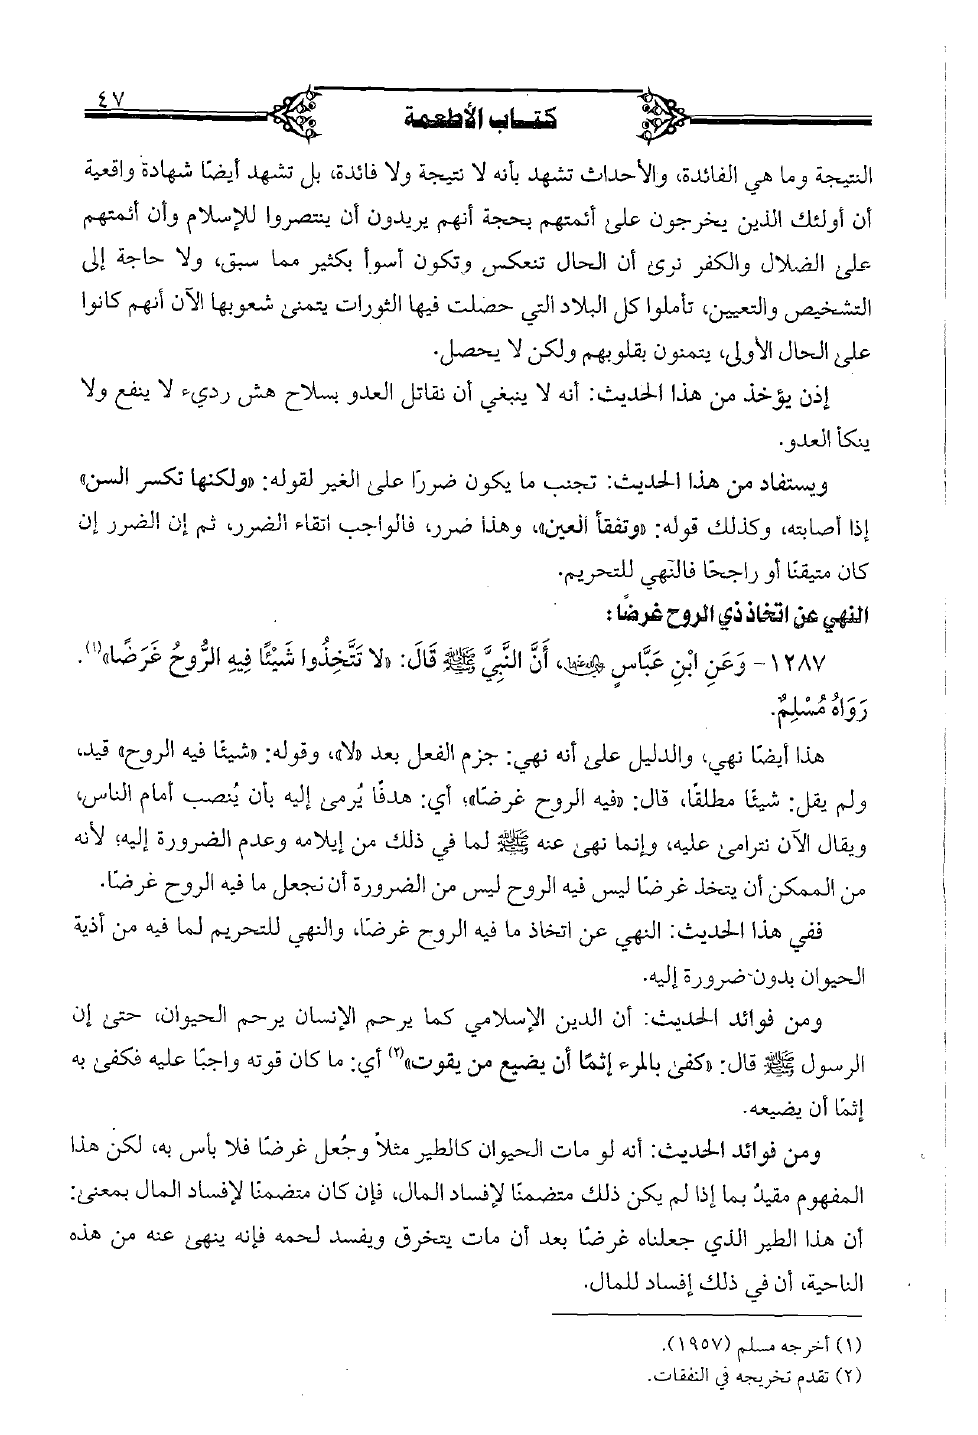 ٤٧
كتاب الأطعمة
النتيجة وما هي الفائدة، والأحداث تشهد بأنه لا نتيجة ولا فائدة، بل تشهد أيضًا شهادة واقعية
أن أولئك الذين يخرجون على أئمتهم بحجة أنهم يريدون أن ينتصروا للإسلام وأن أئمتهم
على الضلال والكفر نرى أن الحال تنعكس وتكون أسوأ بكثير مما سبق، ولا حاجة إلى
التشخيص والتعيين، تأملوا كل البلاد التي حصلت فيها الثورات يتمنى شعوبها الآن أنهم كانوا
على الحال الأولى، يتمنون بقلوبهم ولكن لا يحصل.
إذن يؤخذ من هذا الحديث: أنه لا ينبغي أن نقاتل العدو بسلاح هش رديء لا ينفع ولا
ينكأ العدو.
ويستفاد من هذا الحديث: تجنب ما يكون ضررًا على الغير لقوله: «ولكنها تكسر السن»
إذا أصابته، وكذلك قوله: «وتفقأ العين»، وهذا ضرر، فالواجب اتقاء الضرر، ثم إن الضرر إن
كان متيقنًا أو راجحًا فالنهي للتحريم.
النهي عن اتخاذ ذي الروح غرضًا:
١٢٨٧- وَعَنِ ابْنِ عَبَّاسٍ رضي الله عنهما، أَنَّ النَّبِيَّ ﷺ قَالَ: «لَا تَتَّخِذُوا شَيْئًا فِيهِ الرُّوحُ غَرَضًا»(١).
رَوَاهُ مُسْلِمٌ.
هذا أيضًا نهي، والدليل على أنه نهي: جزم الفعل بعد «لا»، وقوله: «شيئًا فيه الروح» قيد،
ولم يقل: شيئًا مطلقًا، قال: «فيه الروح غرضًا»؛ أي: هدفًا يُرمى إليه بأن يُنصب أمام الناس،
ويقال الآن نترامى عليه، وإنما نهى عنه ﷺ لما في ذلك من إيلامه وعدم الضرورة إليه؛ لأنه
من الممكن أن يتخذ غرضًا ليس فيه الروح ليس من الضرورة أن نجعل ما فيه الروح غرضًا.
ففي هذا الحديث: النهي عن اتخاذ ما فيه الروح غرضًا، والنهي للتحريم لما فيه من أذية
الحيوان بدون ضرورة إليه.
ومن فوائد الحديث: أن الدين الإسلامي كما يرحم الإنسان يرحم الحيوان، حتى إن
الرسول ﷺ قال: «كفى بالمرء إثمًا أن يضيع من يقوت»(٢) أي: ما كان قوته واجبًا عليه فكفى به
إثمًا أن يضيعه.
ومن فوائد الحديث: أنه لو مات الحيوان كالطير مثلاً وجُعل غرضًا فلا بأس به، لكن هذا
المفهوم مقيدٌ بما إذا لم يكن ذلك متضمنًا لإفساد المال، فإن كان متضمنًا لإفساد المال بمعنى:
أن هذا الطير الذي جعلناه غرضًا بعد أن مات يتخرق ويفسد لحمه فإنه ينهى عنه من هذه
الناحية، أن في ذلك إفساد للمال.
(١) أخرجه مسلم (١٩٥٧).
(٢) تقدم تخريجه في النفقات.